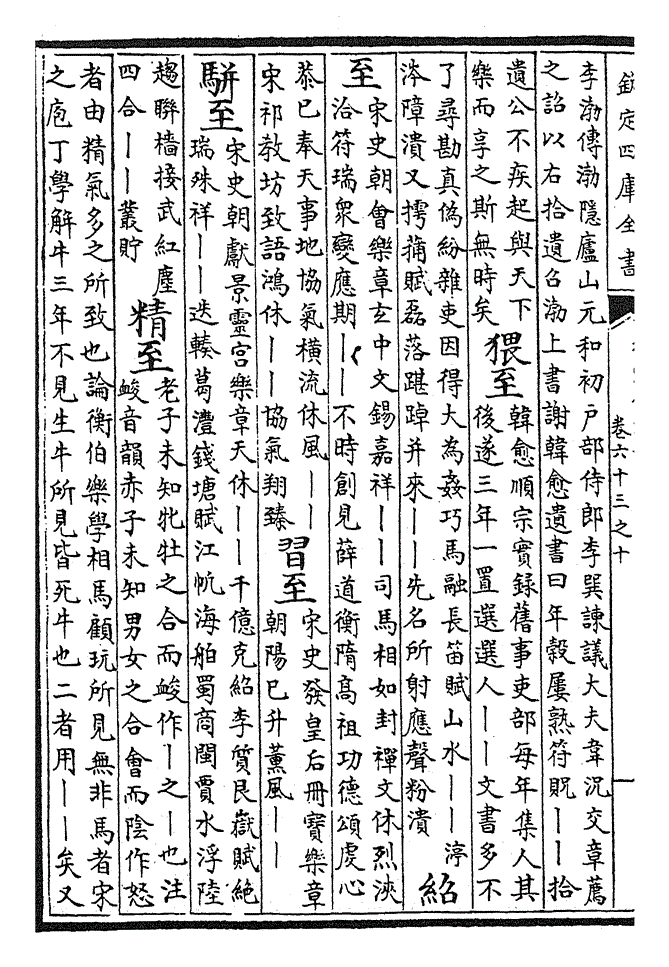 欽定四庫全書
卷六十三之十
一
李渤傳渤隱廬山元和初户部侍郎李巽諫議大夫韋况交章薦
之詔以右拾遺召渤上書謝韓愈遺書曰年穀屢熟符貺丨丨拾
遺公不疾起與天下
樂而享之斯無時矣
猥至
韓愈順宗實録舊事吏部每年集人其
後遂三年一置選選人丨丨文書多不
了尋勘真偽紛雜吏因得大為姦巧馬融長笛賦山水丨丨渟
涔障潰又摴蒱賦磊落踸踔并來丨丨先名所射應聲粉潰
紹
至
宋史朝會樂章玄中文錫嘉祥丨丨司馬相如封禪文休烈浹
洽符瑞衆變應期丨丨不時創見薛道衡隋髙祖功德頌虔心
恭巳奉天事地協氣横流休風丨丨
宋祁教坊致語鴻休丨丨協氣翔臻
習至
宋史發皇后冊寶樂章
朝陽巳升薰風丨丨
駢至
宋史朝獻景靈宫樂章天休丨丨千億克紹李質艮嶽賦絶
瑞殊祥丨丨迭轃葛澧錢塘賦江帆海舶蜀商閩賈水浮陸
趨聯檣接武紅塵
四合丨丨叢貯
精至
老子未知牝牡之合而峻作丨之丨也注
峻音韻赤子未知男女之合會而陰作怒
者由精氣多之所致也論衡伯樂學相馬顧玩所見無非馬者宋
之庖丁學解牛三年不見生牛所見皆死牛也二者用丨丨矣又